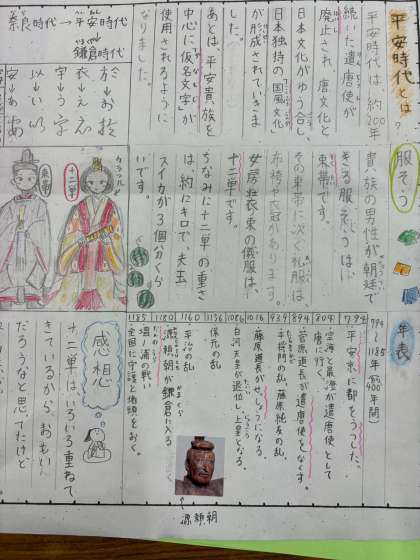 平安時代とは?
平安時代は、約200年
続いた遣唐使が
廃止され、唐文化と
日本文化がゆう合し、
日本独特の国風文化
が形成されていきま
した。
あとは、平安貴族を
中心に"仮名文字"が
使用されるように
なりました。
奈良時代→平安時代
→鎌倉時代
於→お於
衣→え衣
宇→う宇
以→い以
安→あ安
服そう
貴族の男性が朝廷で
きる服そうは、
束帯です。
その束帯に次ぐ礼服は、
布袴や衣冠があります。
女房装束の儀服は、
十二単です。
ちなみに十二単の重さ
は約に十キロで、大玉
スイカが3個分くら
いです。
カラフル
十二単
束帯
年表
794~1185年(約400年間)
794 平安京に都をうつした。
804 空海と最澄が遣唐使として
唐に行く。
894 菅原道長が遣唐使をなくす。
939 平将門の乱、藤原純友の乱。
1016 藤原道長がせっしょうになる。
1086 白河天皇が退位し、上皇となる。
1156 保元の乱
1160 平治の乱
1180 源頼朝が鎌倉に入る
1185 壇ノ浦の戦い
全国に守護と地頭をおく。
源頼朝
感想
十二単はいろいろ重ねて
きているから、おもい
だろうなと思ってたけど